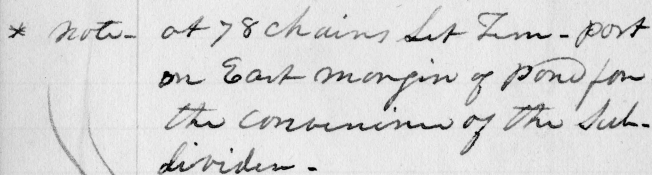 * Note - at 78 chains Set Tem - post
on East margin of pond for
the convenience of the Sub-
divider -